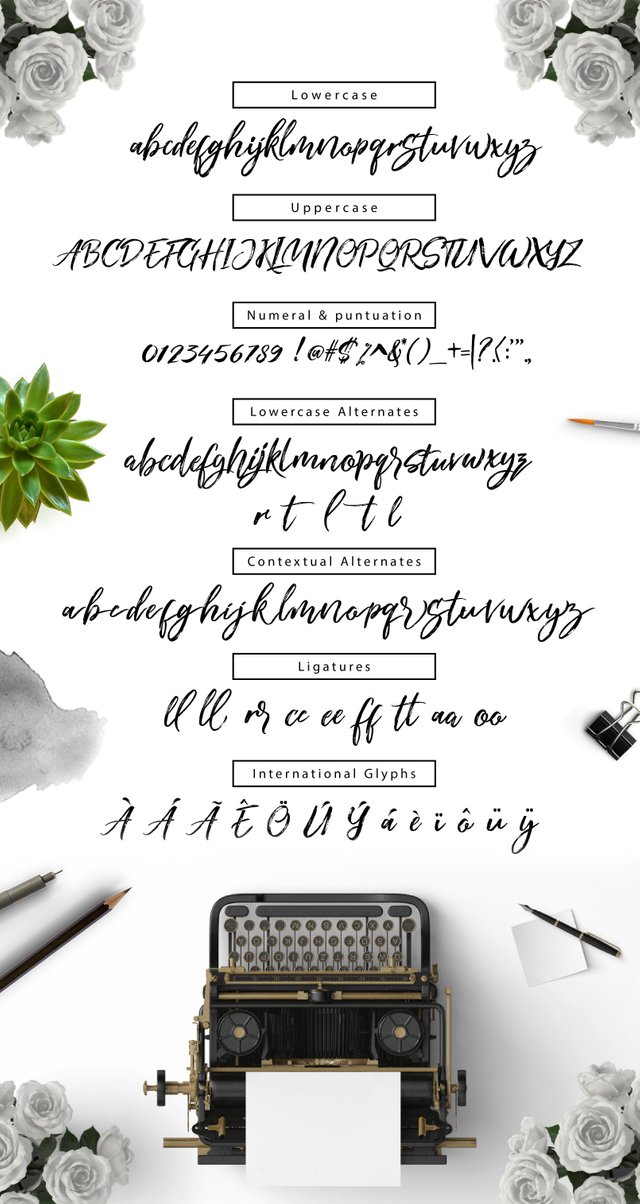 Lowercase
abcdefghijklmnopqrstuvwxyz
Uppercase
ABCDEFGHIJKLMNOPQRSTUVWXYZ
Numeral & puntuation
0123456789 !@#$%^&*()_+=|?<:"",.,
Lowercase Alternates
abcdefghijklmnopqrstuvwxyz
r t l t l
Contextual Alternates
abcdefghijklmnopqrstuvwxyz
Ligatures
ll ll rr cc ee ff tt aa oo
International Glyphs
À Á Ã Ê Ö Ú Ý á è ï ô ü ÿ